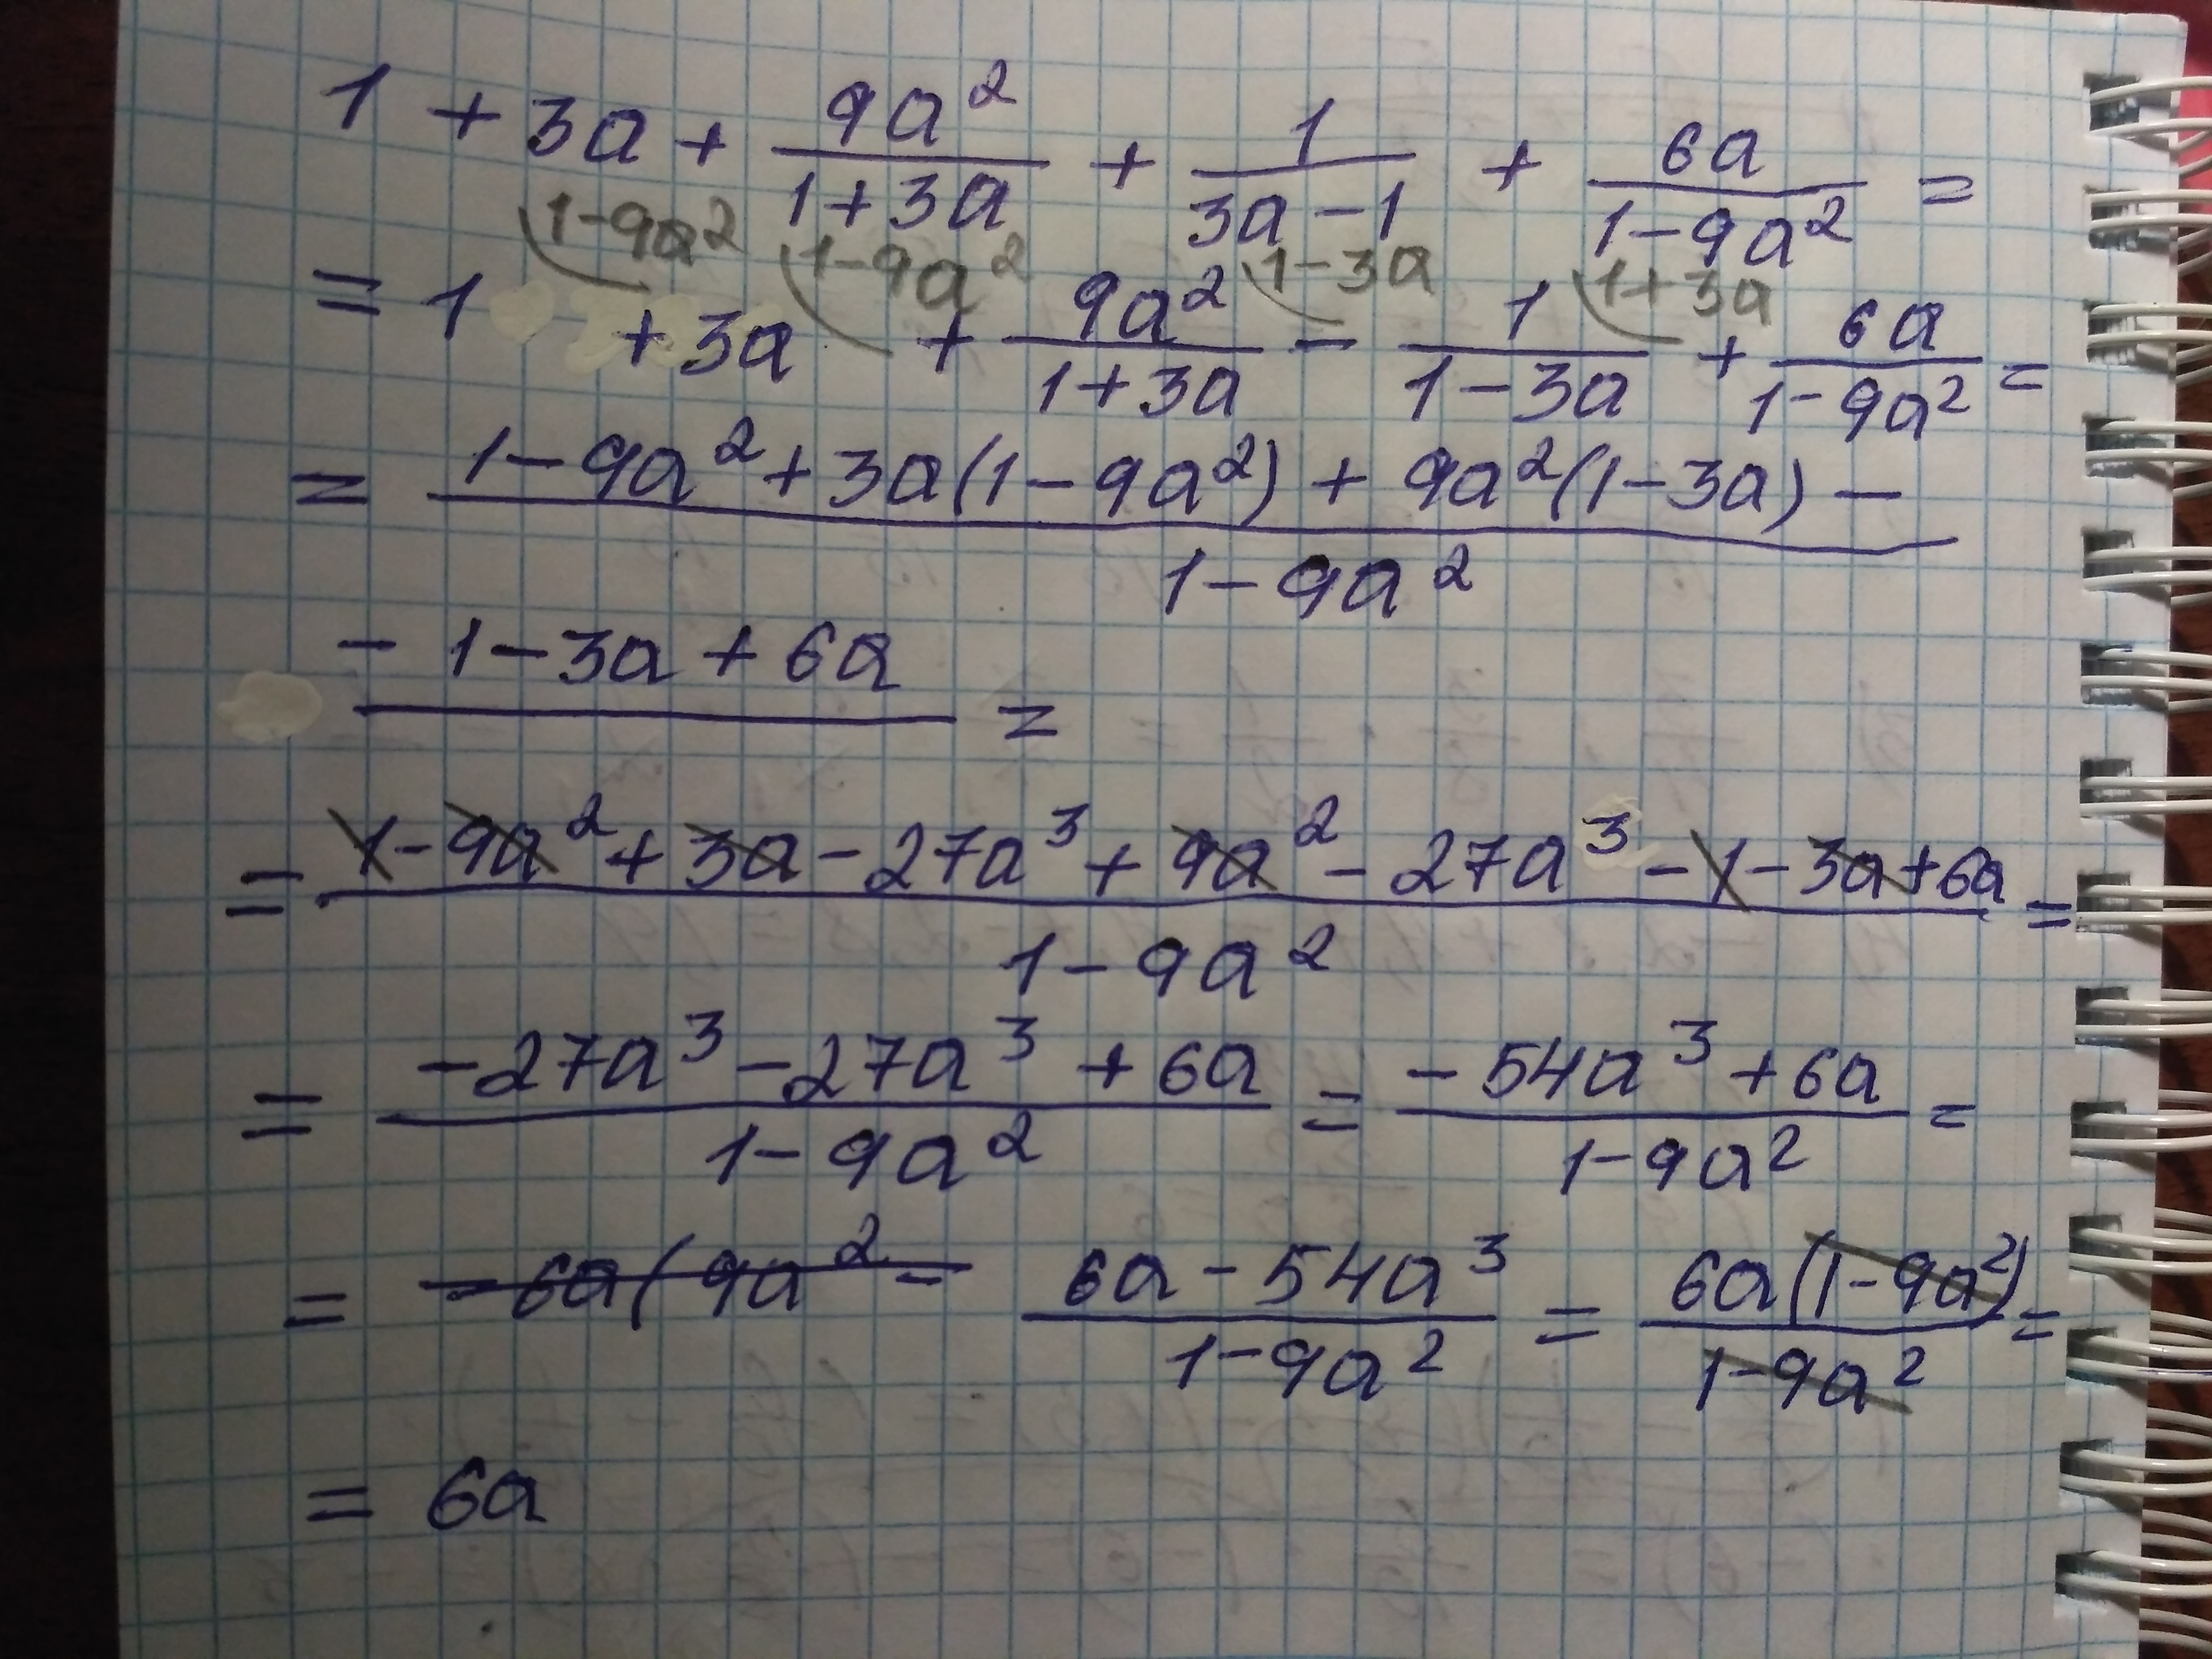 1 + 3a + 9a²/(1+3a) + 1/(3a-1) + 6a/(1-9a²) =
1-9a² 1-9a² 1-3a 1+3a
= 1 + 3a + 9a²/(1+3a) - 1/(1-3a) + 6a/(1-9a²) =
= 1-9a² + 3a(1-9a²) + 9a²(1-3a) -
1-9a²
- 1-3a + 6a =
= 1-9a² + 3a - 27a³ + 9a² - 27a³ - 1 - 3a + 6a =
1-9a²
= (-27a³ - 27a³ + 6a)/(1-9a²) = (-54a³ + 6a)/(1-9a²) =
= -6a(9a² - (6a - 54a³)/(1-9a²) = 6a(1-9a²)/(1-9a²) =
= 6a